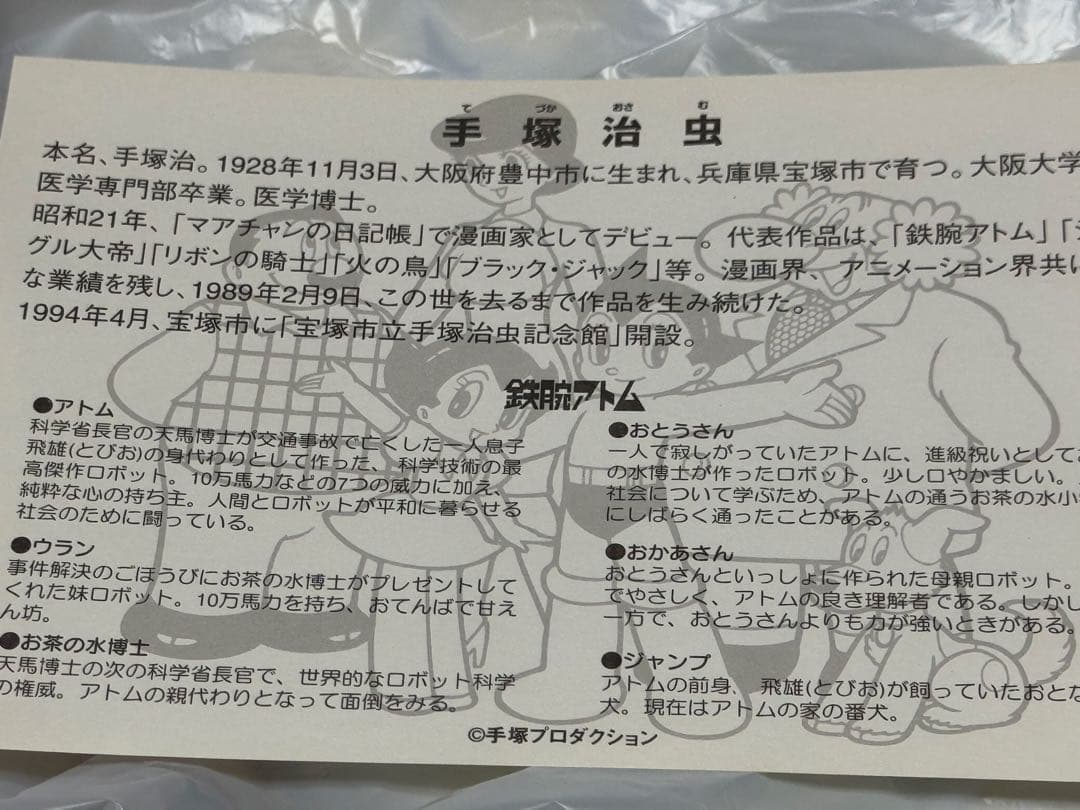 手塚治虫
てづかおさむ
本名、手塚治。1928年11月3日、大阪府豊中市に生まれ、兵庫県宝塚市で育つ。大阪大学
医学専門部卒業。医学博士。
昭和21年、「マアチャンの日記帳」で漫画家としてデビュー。代表作品は、「鉄腕アトム」「
グル大帝」「リボンの騎士」「火の鳥」「ブラック・ジャック」等。漫画界、アニメーション界共に
な業績を残し、1989年2月9日、この世を去るまで作品を生み続けた。
1994年4月、宝塚市に「宝塚市立手塚治虫記念館」開設。
鉄腕アトム
●アトム
科学省長官の天馬博士が交通事故で亡くした一人息子
飛雄(とびお)の身代わりとして作った、科学技術の最
高傑作ロボット。10万馬力などの7つの威力に加え、
純粋な心の持ち主。人間とロボットが平和に暮らせる
社会のために闘っている。
●ウラン
事件解決のごほうびにお茶の水博士がプレゼントして
くれた妹ロボット。10万馬力を持ち、おてんばで甘え
ん坊。
●お茶の水博士
天馬博士の次の科学省長官で、世界的なロボット科学
の権威。アトムの親代わりとなって面倒をみる。
●おとうさん
一人で寂しがっていたアトムに、進級祝いとしてお
の水博士が作ったロボット。少し口やかましい。
社会について学ぶため、アトムの通うお茶の水小
にしばらく通ったことがある。
●おかあさん
おとうさんといっしょに作られた母親ロボット。
でやさしく、アトムの良き理解者である。しかし
一方で、おとうさんよりも力が強いときがある。
●ジャンプ
アトムの前身、飛雄(とびお)が飼っていたおとな
犬。現在はアトムの家の番犬。
©手塚プロダクション